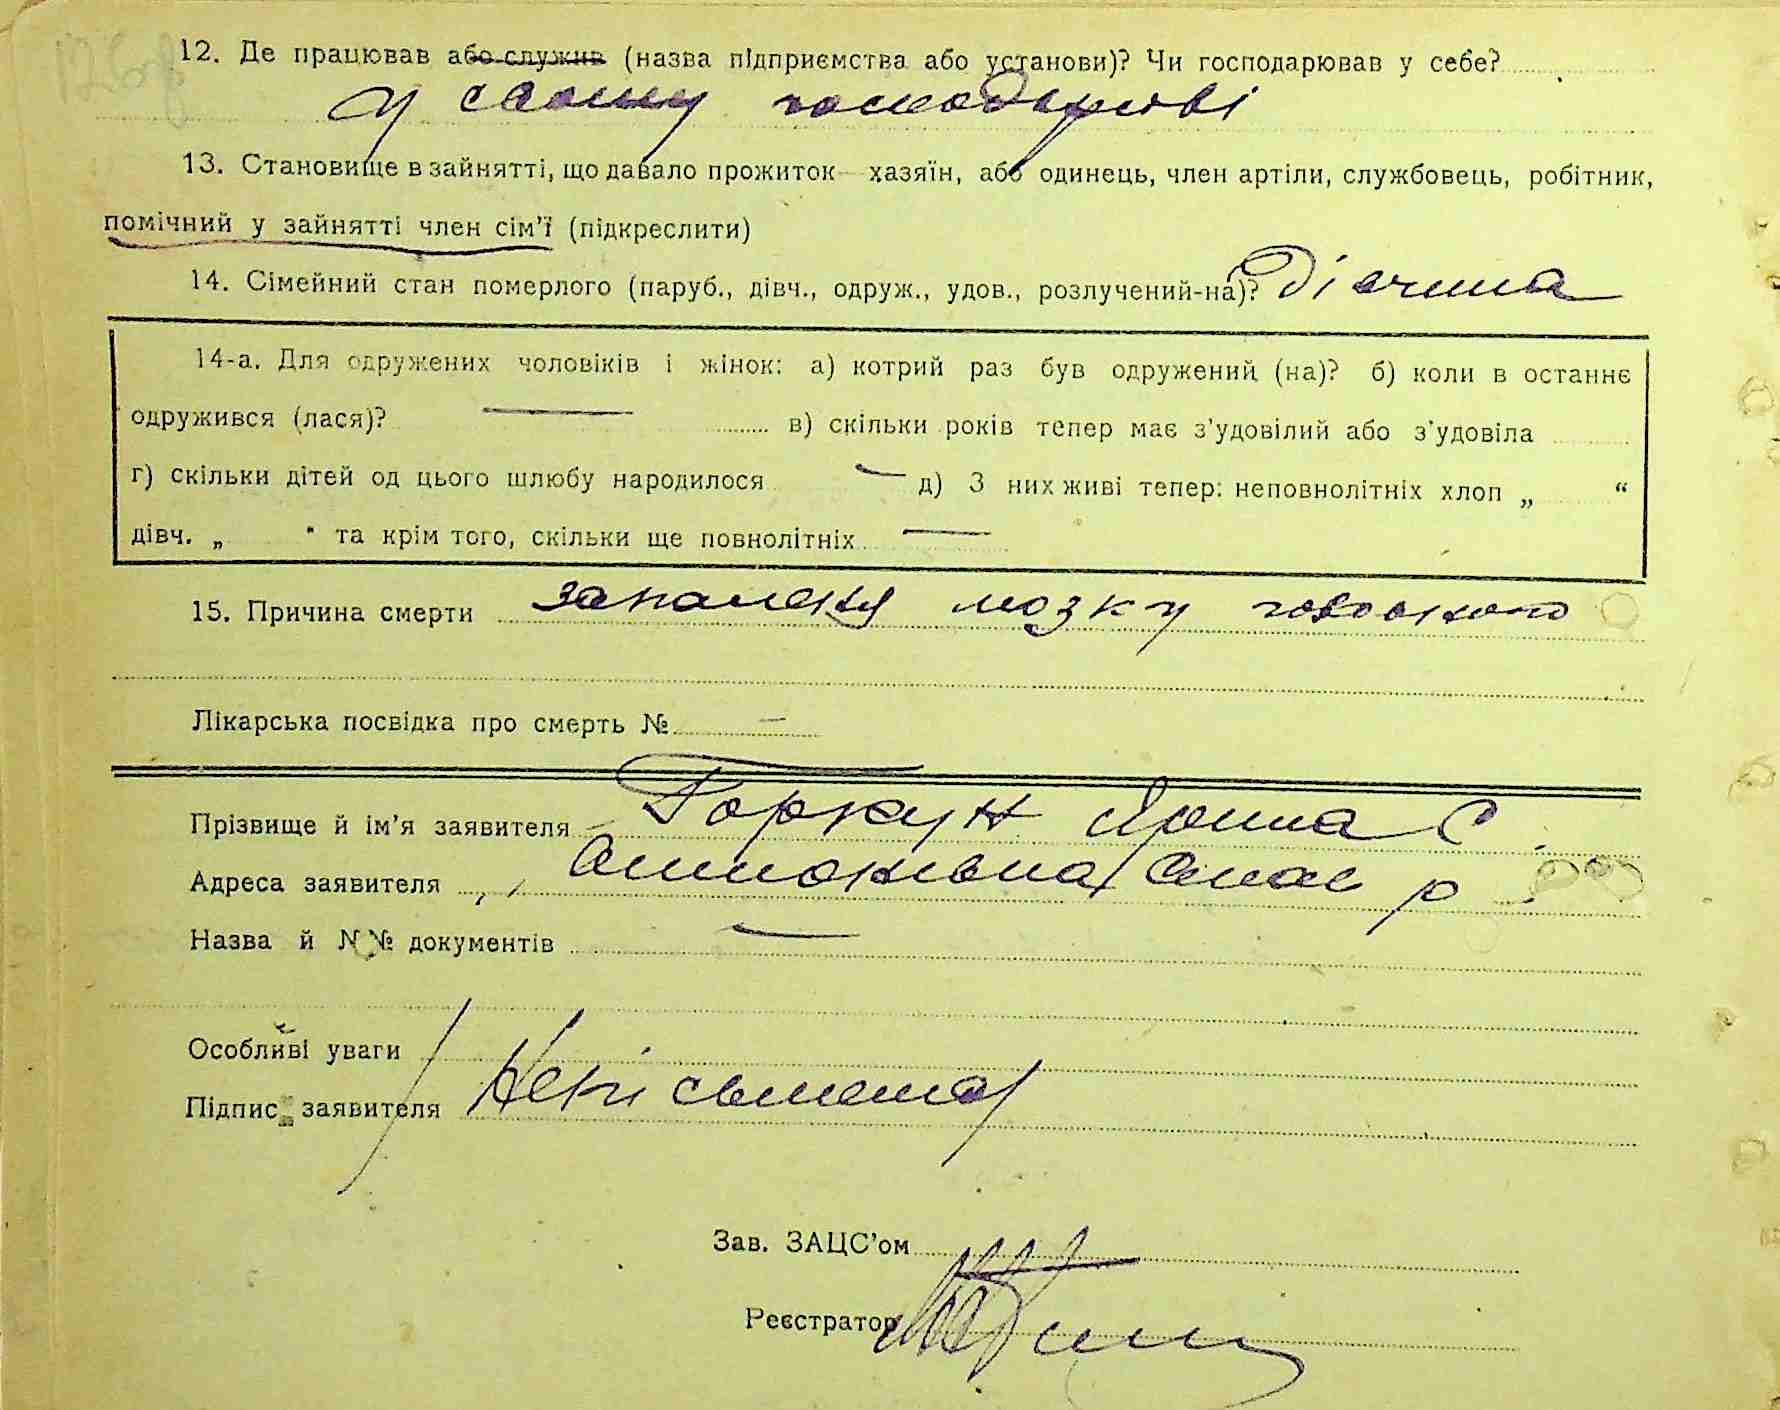 12. Де працював або служив (назва підприємства або установи)? Чи господарював у себе?
у свому господарові
13. Становище в зайнятті, що давало прожиток — хазяїн, або одинець, член артіли, службовець, робітник,
помічний у зайнятті член сім'ї (підкреслити)
14. Сімейний стан померлого (паруб., дівч., одруж., удов., розлучений-на)? Дівчина
14-а. Для одружених чоловіків і жінок: а) котрий раз був одружений (на)? б) коли в останнє
одружився (лася)? — в) скільки років тепер має з'удовілий або з'удовіла
г) скільки дітей од цього шлюбу народилося — д) З них живі тепер: неповнолітніх хлоп „ “
дівч. „ " та крім того, скільки ще повнолітніх —
15. Причина смерти запаленя мозку головного
Лікарська посвідка про смерть № —
Прізвище й ім'я заявителя Горкун Ярина С
Адреса заявителя
Назва й N№ документів —
Особливі уваги
Підпис заявителя Неписьмена
Зав. ЗАЦС'ом
Реєстратор